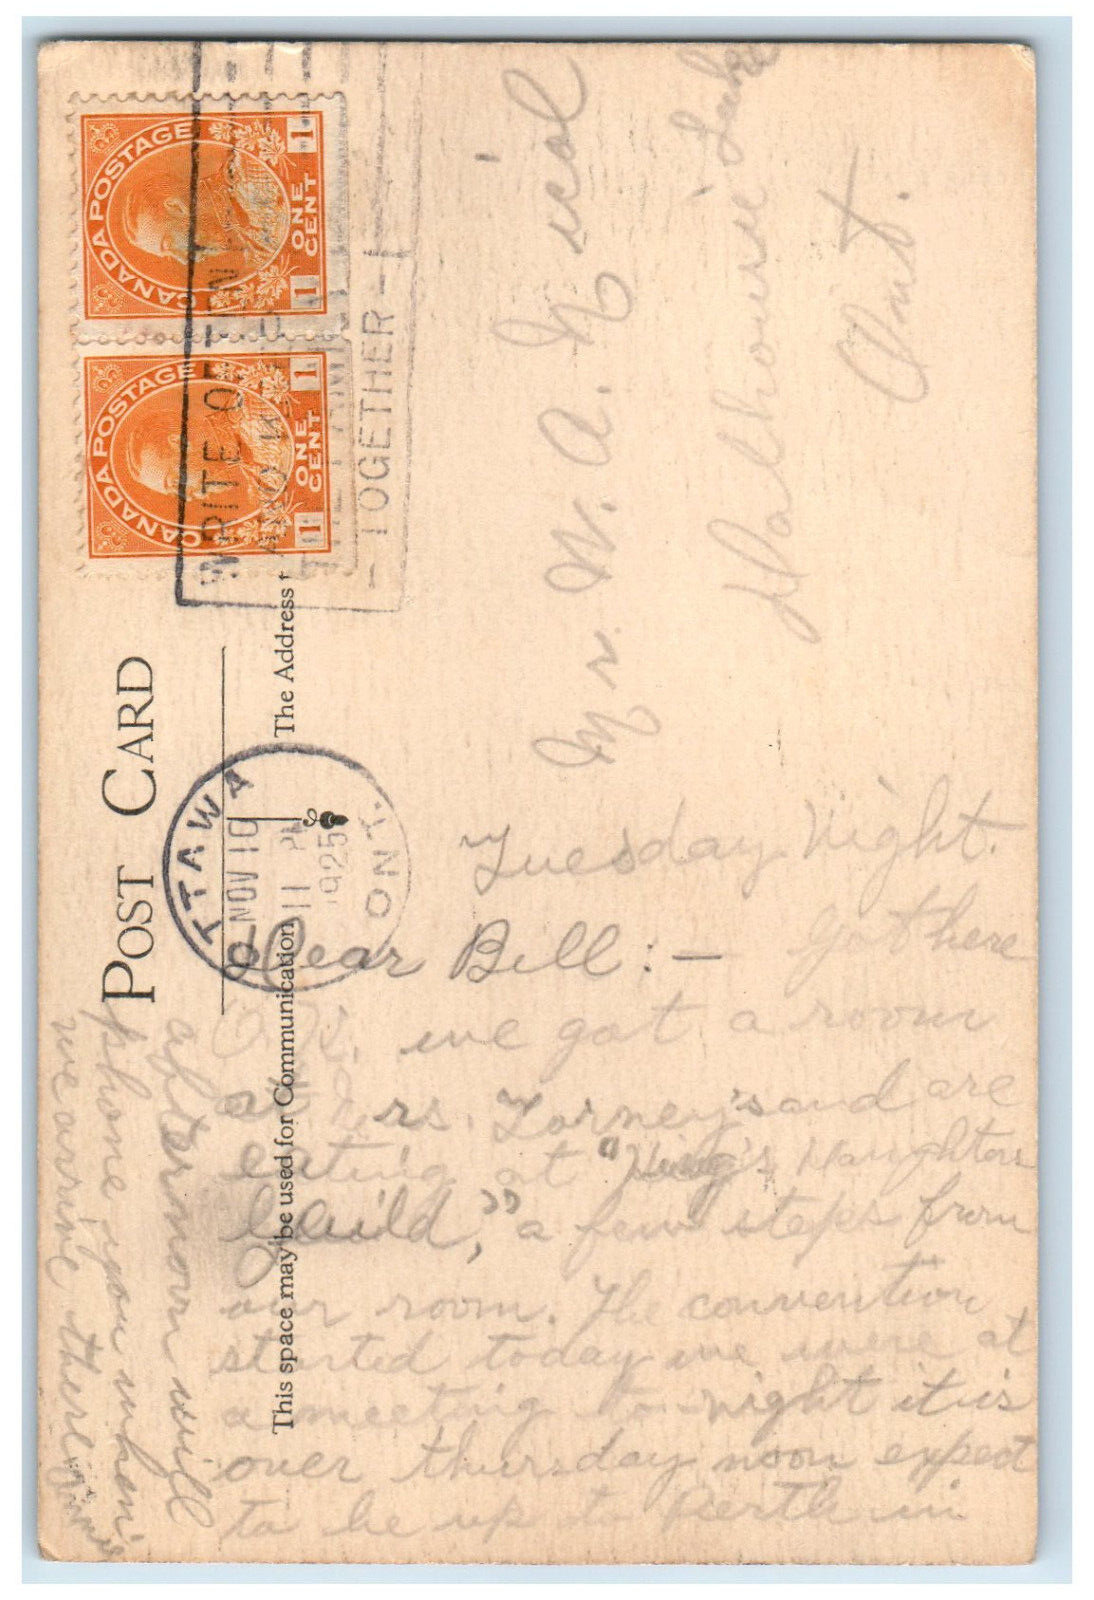 POST CARD
CANADA POSTAGE
1 ONE CENT 1
CANADA POSTAGE
1 ONE CENT 1
WRITE OFTEN
AND
THE FAMILY
- TOGETHER -
OTTAWA
NOV 10
11 PM
1925
ONT.
This space may be used for Communication
The Address
Mr W. A. Nicol
Dalhousie Lake
Ont.
Tuesday Night.
Dear Bill: — got here
O.K. we got a room
at Mrs. Torney's and are
eating at "King's Daughters
Guild," a few steps from
our room. The convention
started today we were at
a meeting to-night it is
over thursday noon expect
to be up to Perth in
afternoon will
phone you when
we arrive there